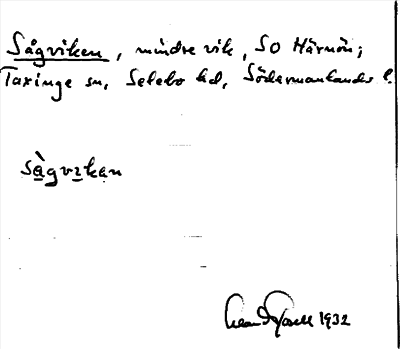 Sågviken, mindre vik, SO Härnön;
Taxinge sn, Selebo hd, Södermanlands l.
sàgvikan
1932